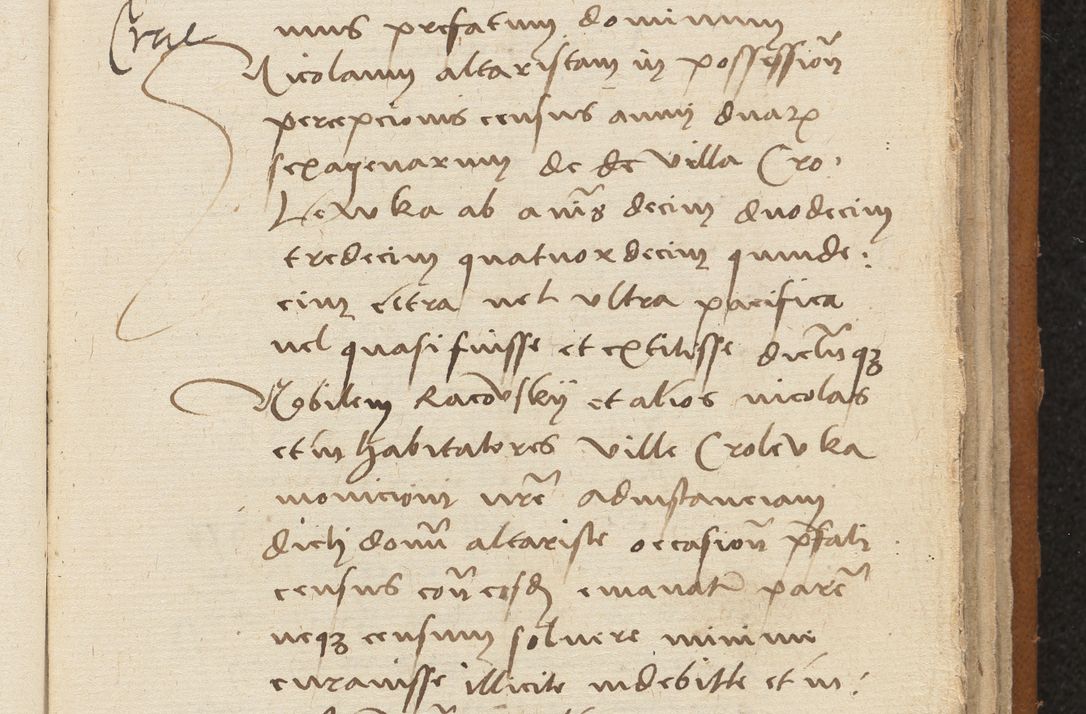 mus prefatum dominum
Nicolaum altaristam in possession̄
percepcionis census annuj duarꝝ
sexagenarum de de villa Cro:
Lewka ab annis decim duodecim
tredecim quatuordecim quinde:
cim citra vel vltra pacifica
vel quasi fuisse et extitisse dictūqꝫ
Nobilem Racovskÿ et alios incolas
et in habitatores ville Crolevka
monicioni nr̄e ad instanciam
dicti domī altariste occasion̄ p̄fati
census con̄ eosdē emanate parēe
neqꝫ censum soluere minime
curauisse illicite indebitte et in: